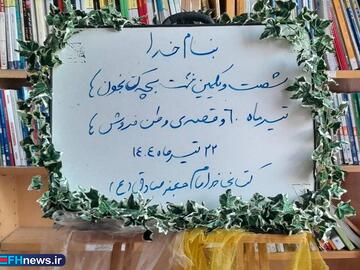 بنام خدا
شصت و یکمین نشست بچه کتابخون ها
تیر ماه ۶۰ و قصه ی وطن فروش ها
۲۲ تیر ماه ۱۴۰۴
کتابخانه امام جعفر صادق (ع)
FHnews.ir